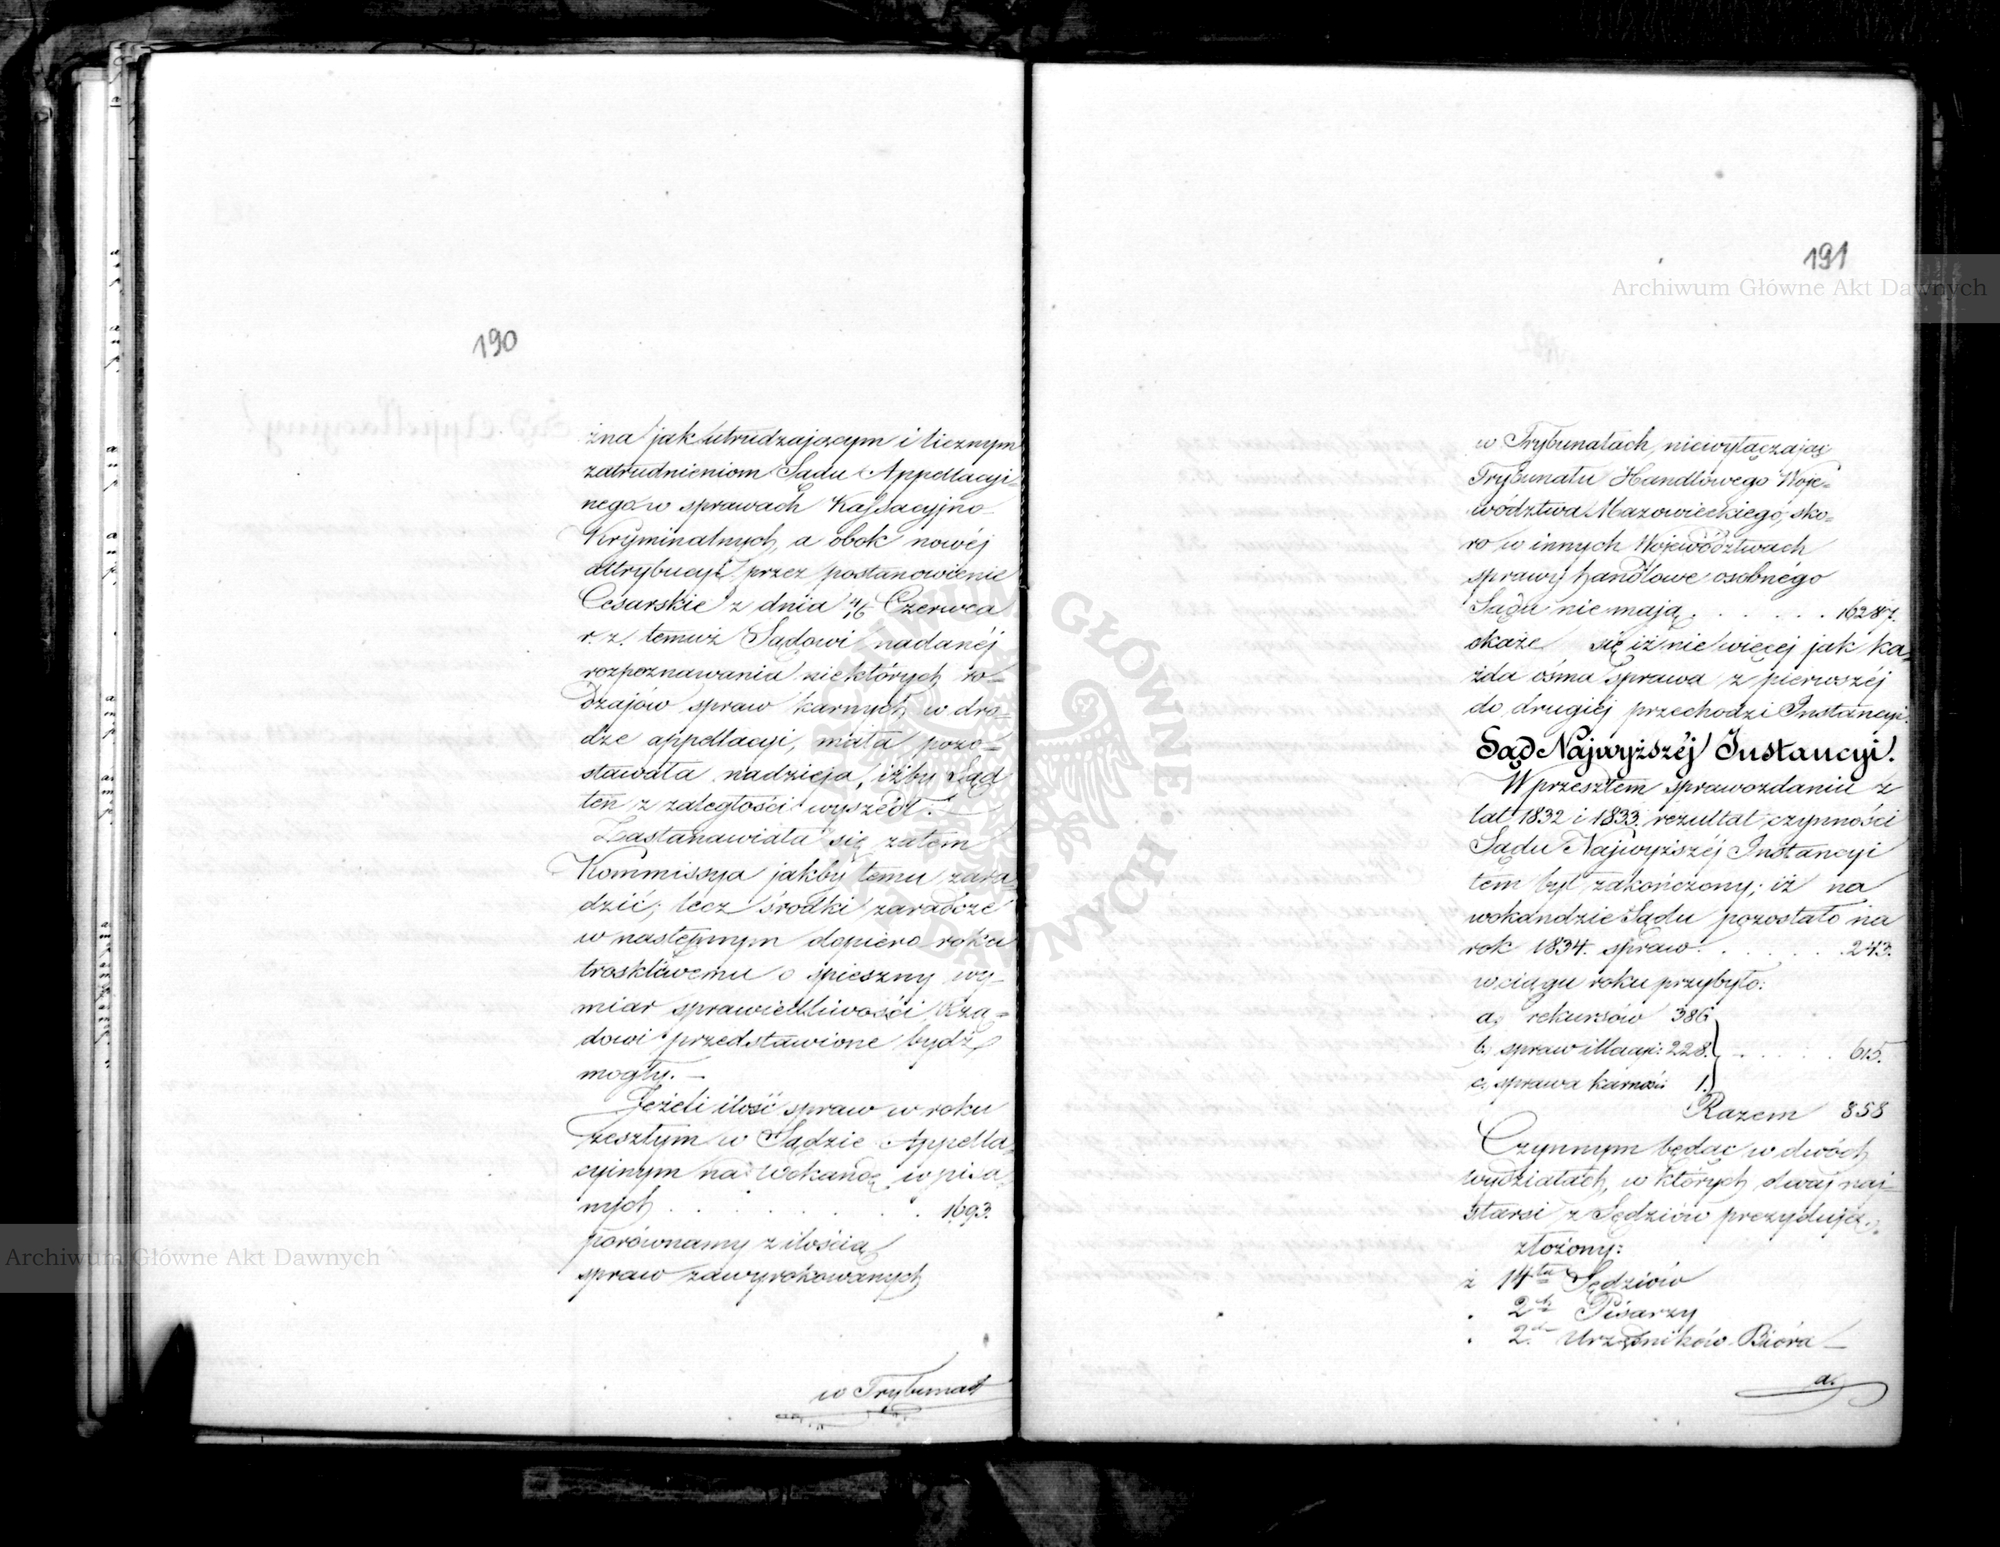 190
żna jak utrudzającym i licznym
zatrudnieniom Sądu Appellacyi-
nego w sprawach Kassacyjno
Kryminalnych, a obok nowéj
attrybucyi przez postanowienie
Cesarskie z dnia 4/16 Czerwca
r. z. temuż Sądowi nadanéj
rozpoznawania niektórych ro-
dzajów spraw karnych w dro-
dze appellacyi, mała pozo-
stawała nadzieja, iżby Sąd
ten z zaległości wyszedł. —
Zastanawiała się zatem
Kommissya jakby temu zara-
dzić; lecz środki zaradcze
w następnym dopiero roku
troskliwemu o spieszny wy-
miar sprawiedliwości Rzą-
dowi przedstawione bydź
mogły. —
Jeżeli ilość spraw w roku
zeszłym w Sądzie Appella-
cyinym na Wokandę wpisa-
nych . . . . . . . . 1693.
porównamy z ilością
spraw zawyrokowanych
w Trybunał
191
w Trybunałach, niewyłączając
Trybunału Handlowego Woje-
wództwa Mazowieckiego, sko-
ro w innych Województwach
sprawy handlowe osobnégo
Sądu nie mają . . . . . . 16287.
okaże się iż nie więcéj jak ka-
żda ósma sprawa z pierwszéj
do drugiéj przechodzi Instancyi.
Sąd Najwyższéj Instancyi.
W przeszłem sprawozdaniu z
lat 1832 i 1833. rezultat czynności
Sądu Najwyższéj Instancyi
tem był zakończony; iż na
wokandzie Sądu pozostało na
rok 1834. spraw . . . . . . 243.
w ciągu roku przybyło:
a, rekursów 386
b, spraw illacyi: 228. . . . . . 615.
c, sprawa karności 1.
Razem 858
Czynnym będąc w dwóch
wydziałach, w których dwaj naj-
starsi z Sędziów prezydują,
złożony:
z 14tu Sędziów
. 2ch Pisarzy
. 2ch Urzędników Bióra —
Archiwum Główne Akt Dawnych
Archiwum Główne Akt Dawnych
ARCHIWUM GŁÓWNE AKT DAWNYCH